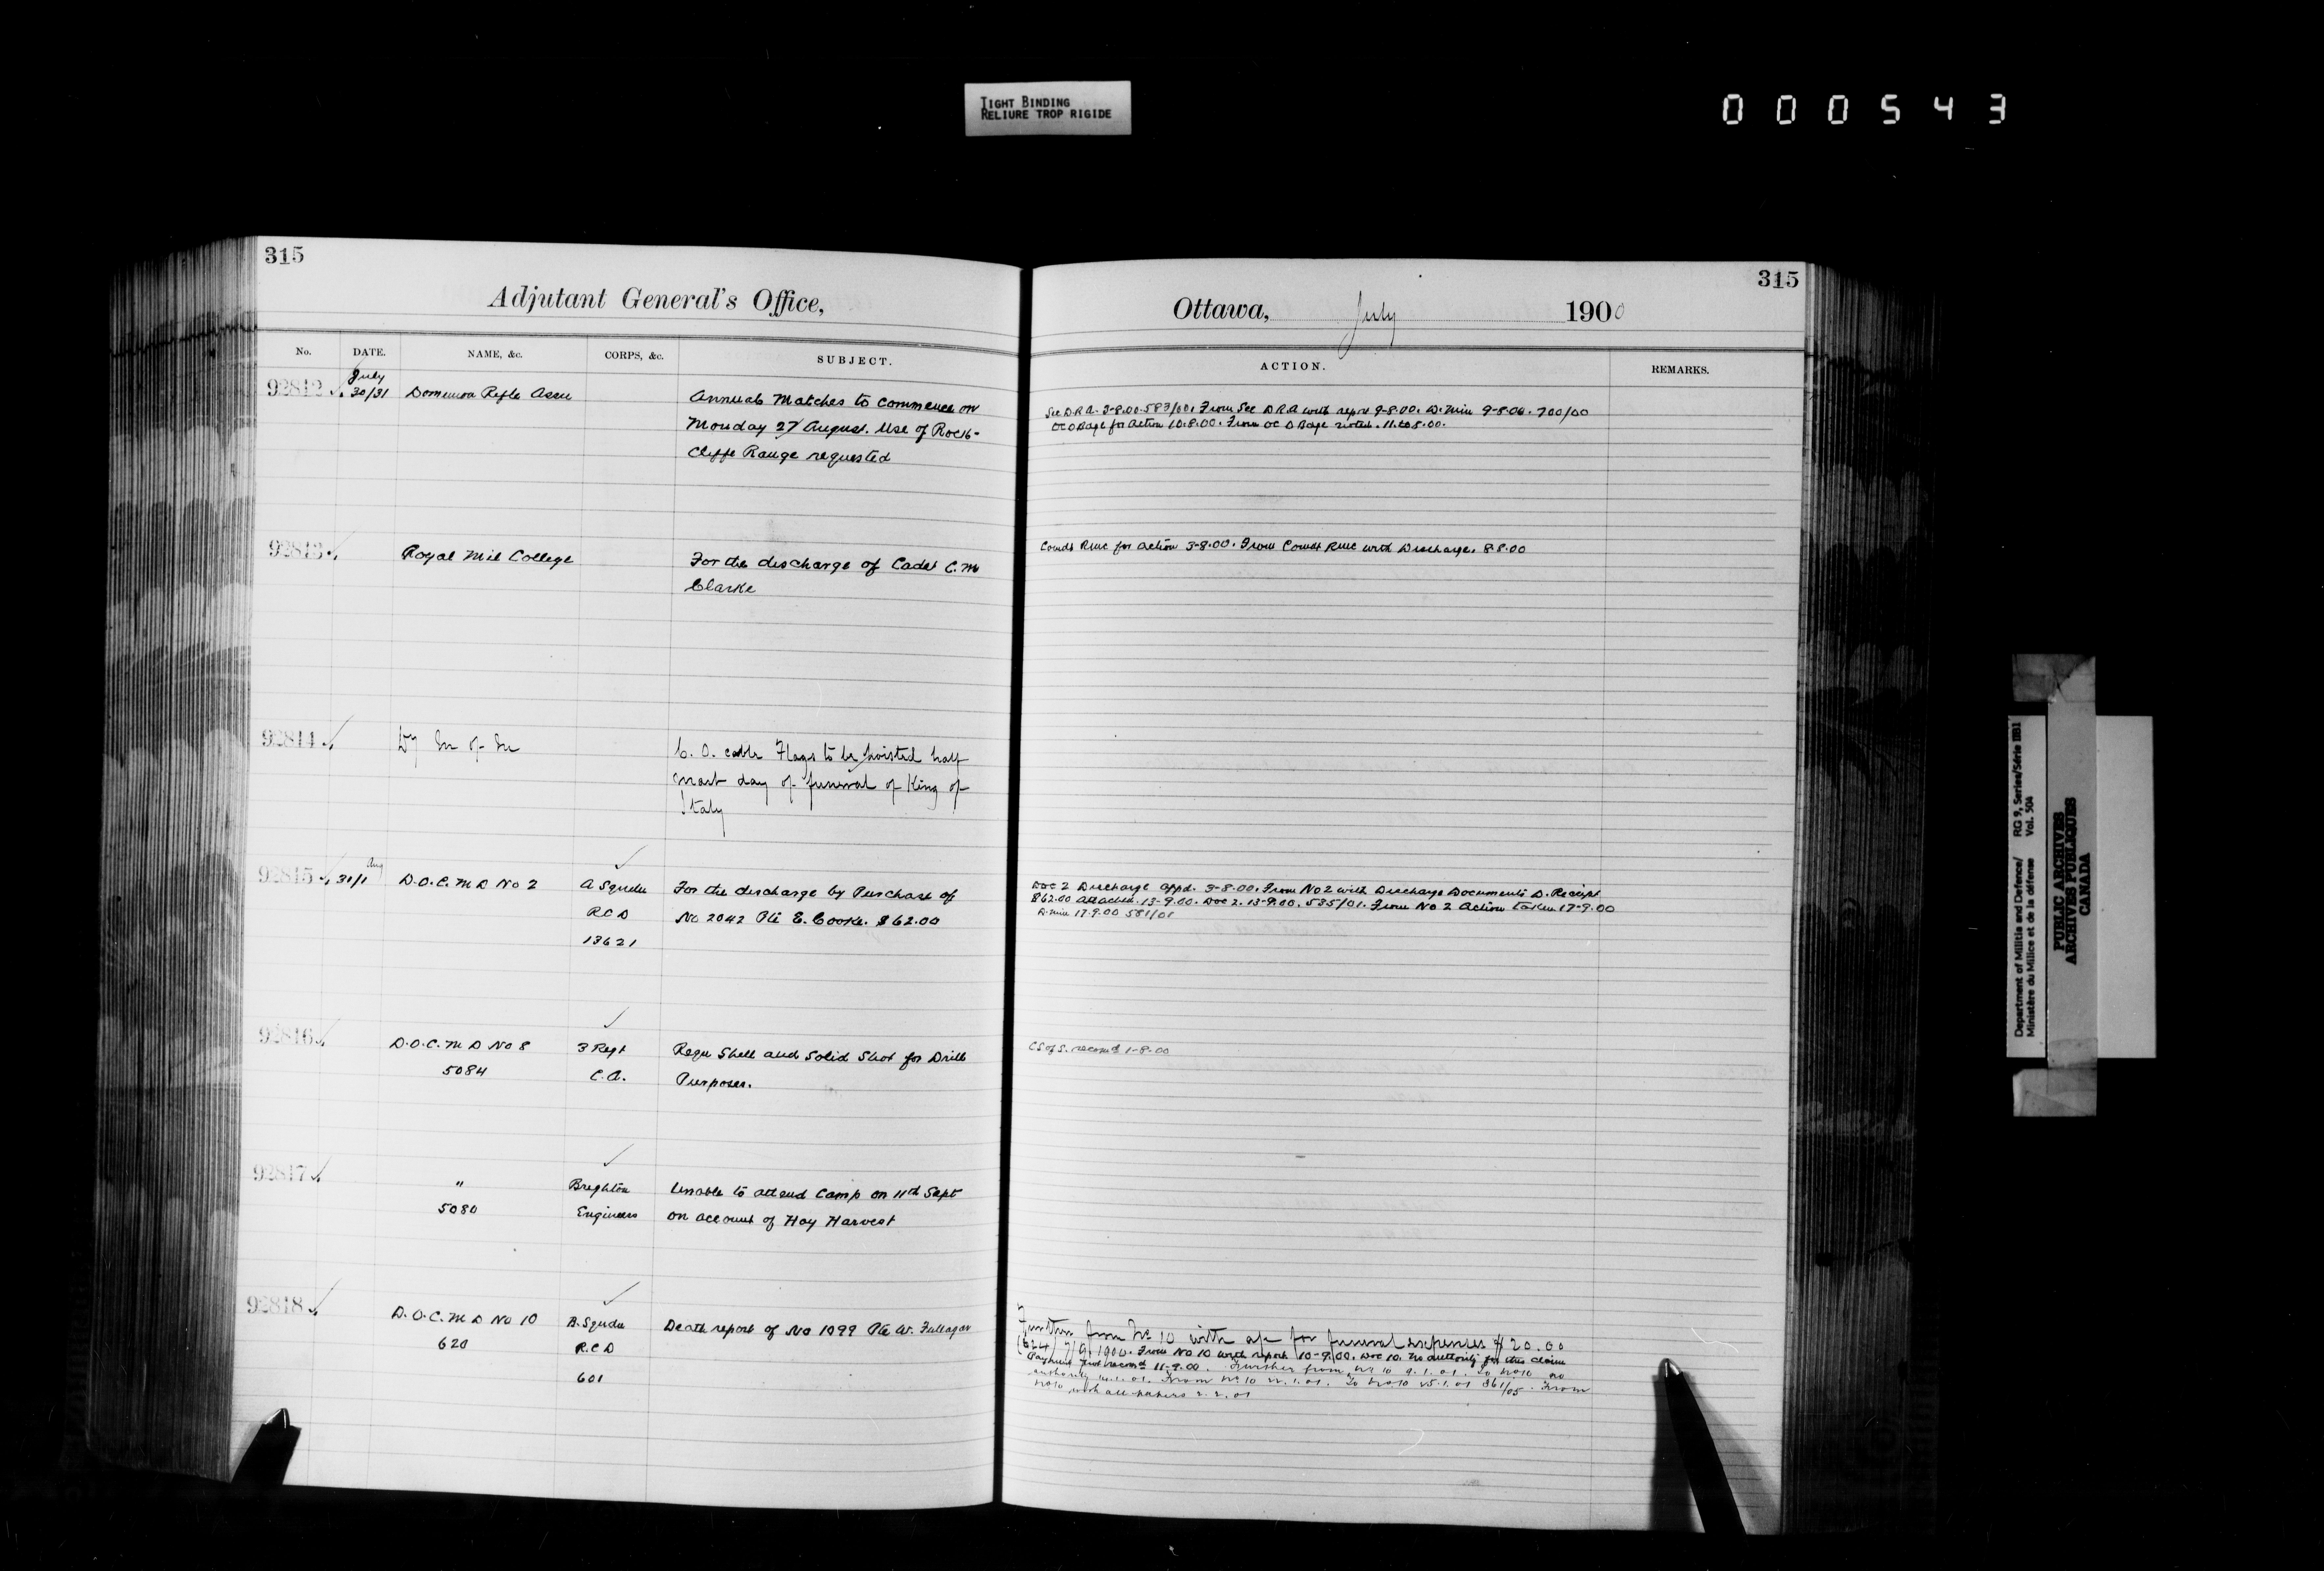 TIGHT BINDING
RELIURE TROP RIGIDE
000543
315
Adjutant General's Office,
No. DATE. NAME, &c. CORPS, &c. SUBJECT.
92812 July 30/31 Dominion Rifle Assn Annual Matches to commence on
Monday 27 August. Use of Rock-
cliffe Range requested
92813 Royal Mil College For the discharge of Cadet C. M
Clarke
92814 Dy M of M C. O. cable Flags to be hoisted half
mast day of funeral of King of
Italy
92815 31/1 Aug D.O.C. M D No 2 A Squdn For the discharge by Purchase of
R C D No 2042 Pte E. Cooke. $62.00
13621
92816 D.O.C. M D No 8 3 Regt Requ Shell and Solid Shot for Drill
5084 C.A. Purposes.
92817 " Brighton Unable to attend Camp on 11th Sept
5080 Engineers on account of Hay Harvest
92818 D.O.C. M D No 10 B. Squdn Death report of No 1099 Pte W. Fullagar
620 R.C D
601
315
Ottawa, July 1900
ACTION. REMARKS.
Sec D.R.A. 3-8.00. 583/00. From Sec D R A with report 9-8.00. D. Min 9-8.00. 700/00
for Action 10.8.00. From OC
Comdt RMC for action 3-8.00. From Comdt RMC with Discharge. 8.8.00
Doc 2 Discharge appd. 3-8.00. From No 2 with Discharge Documents D. Receipt
$62.00 attached. 13-9.00. Doc 2. 13-9.00. 535/01. From No 2 Action taken 17-9.00
D. Min 17.9.00 581/01
1-8-00
Further from No 10 with for funeral expenses $20.00
(624) 7/9/1900. From No 10 with report 10-9.00. Doc 10. No authority for this claim
11-9.00. Further from No 10 9.1.01. To No 10 no
authority From No 10 22.1.01. To No 10 25.1.01 861/05. From
No 10 with all papers 2.2.01
Department of Militia and Defence/ RG 9, Series/Série IIB1
Ministère du Milice et de la défense Vol. 504
PUBLIC ARCHIVES
ARCHIVES PUBLIQUES
CANADA